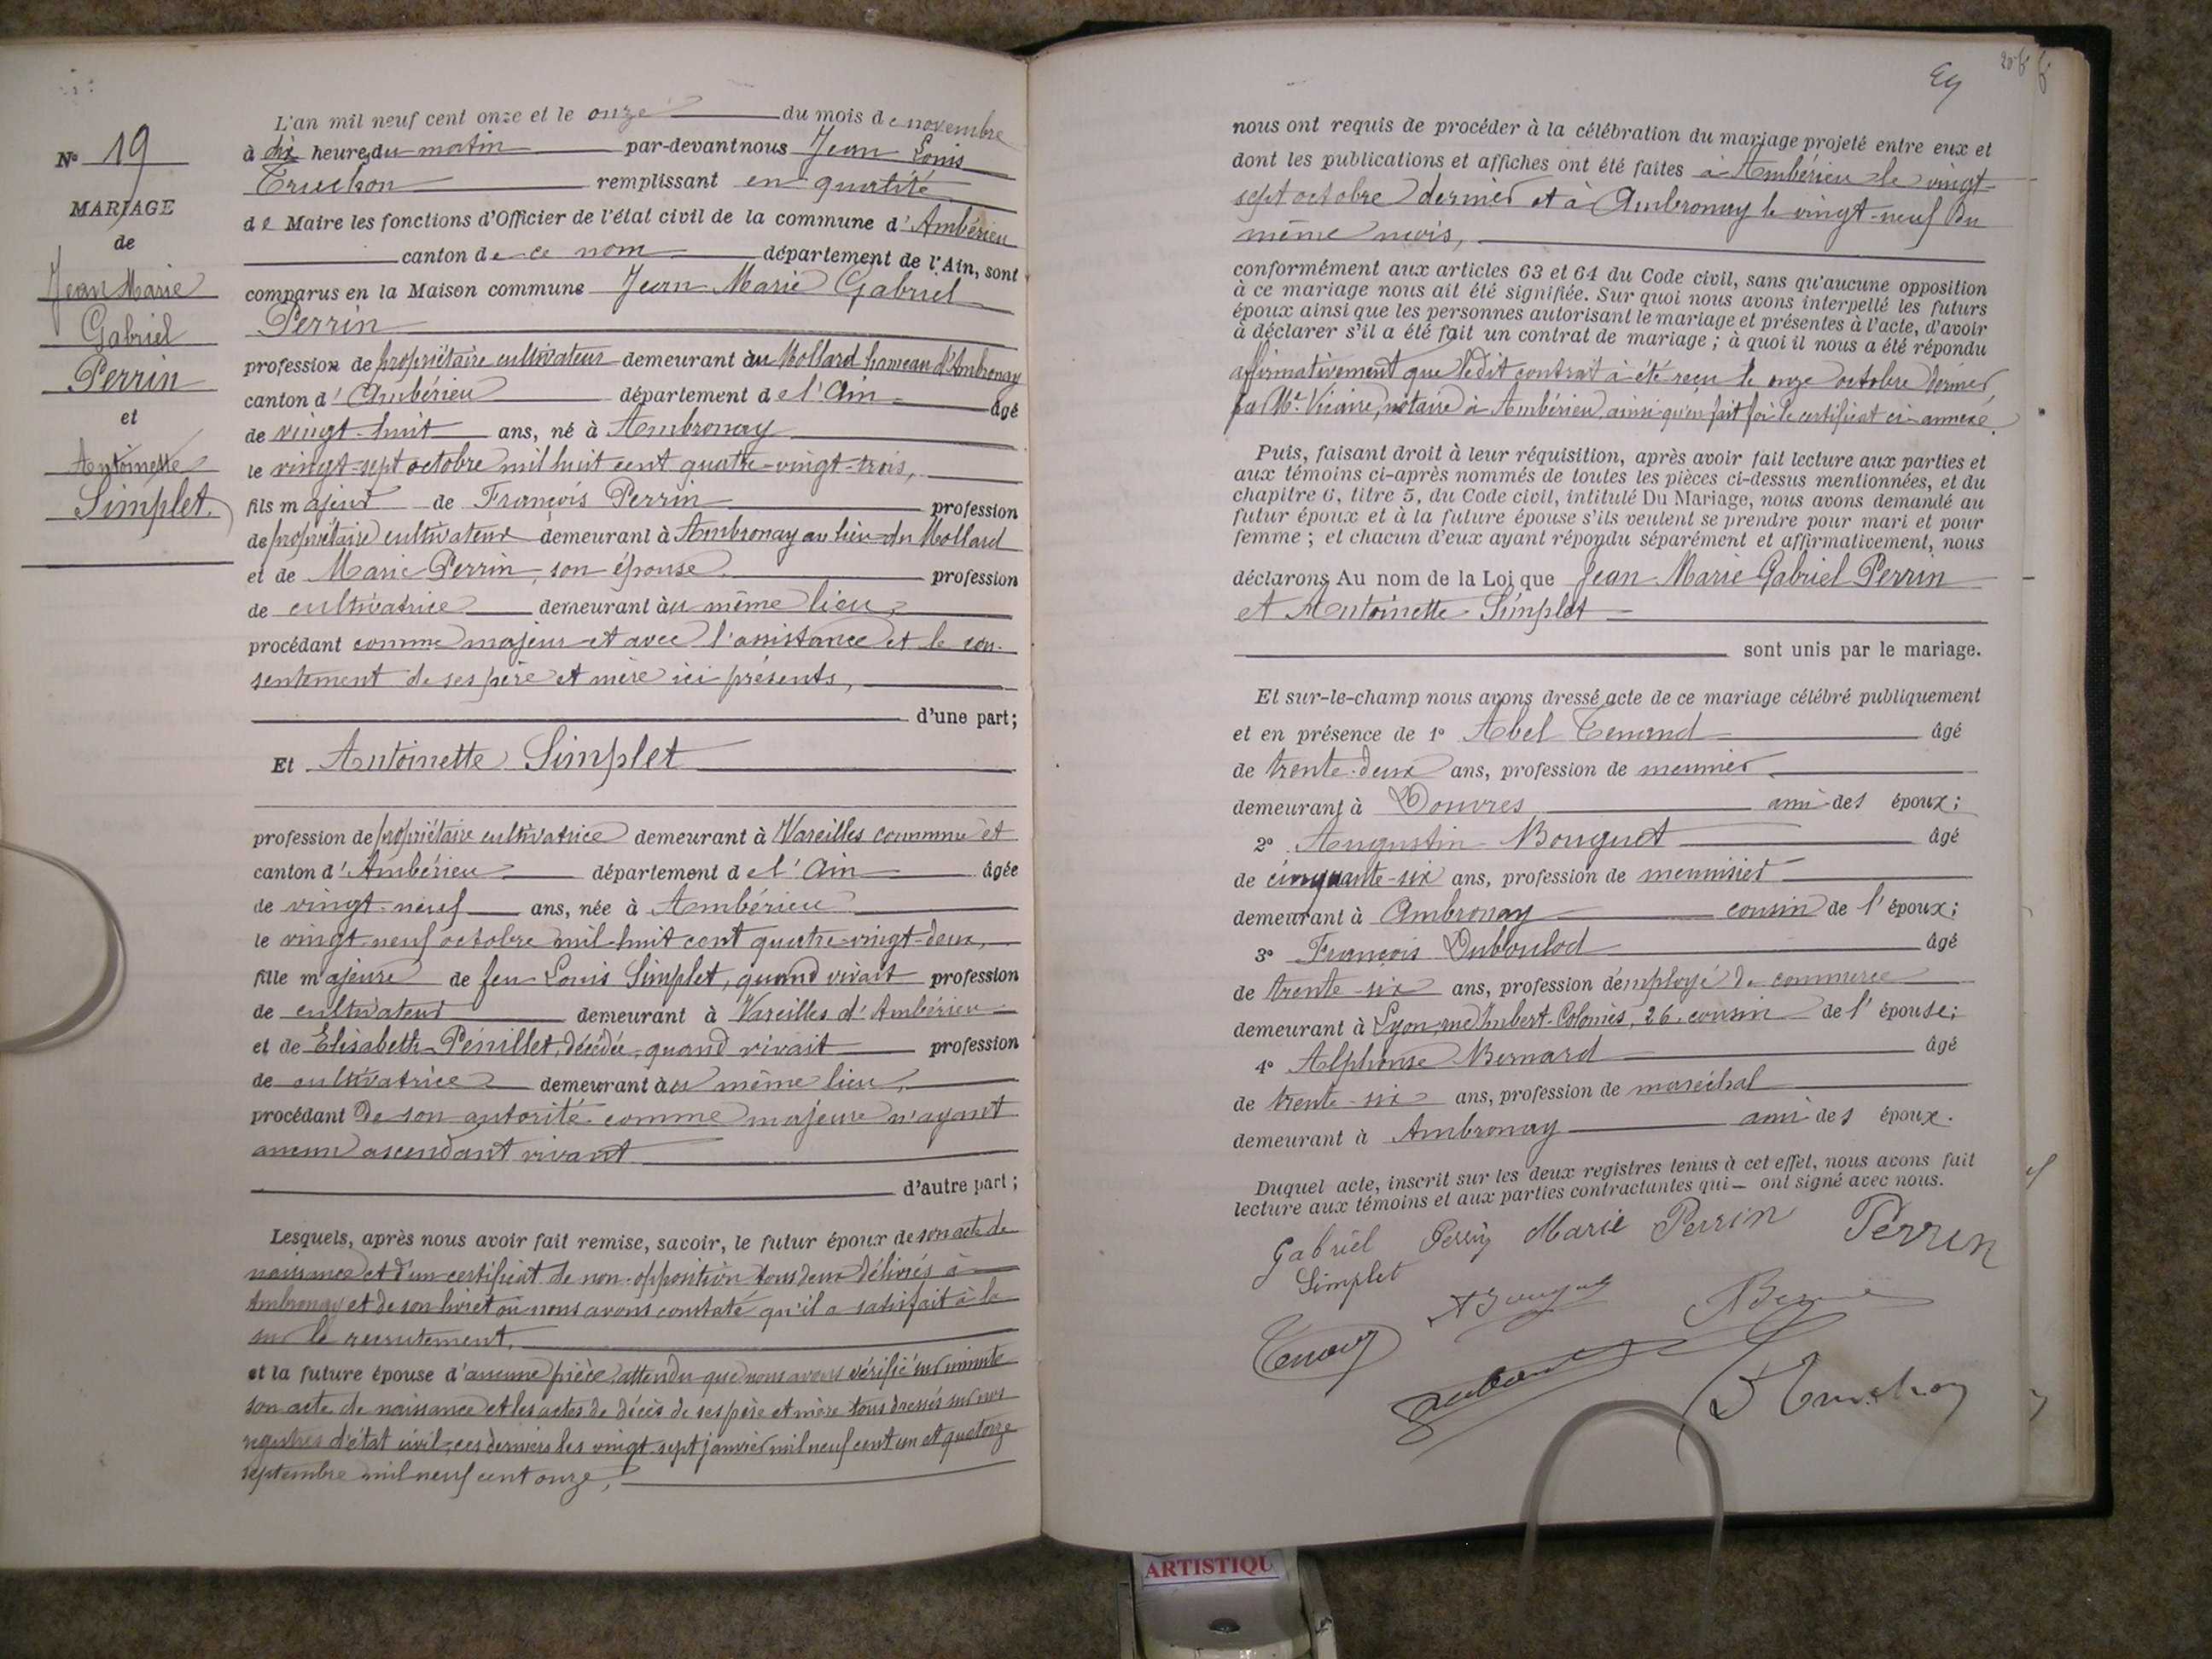 N° 19
MARIAGE
de
Jean Marie
Gabriel
Perrin
et
Antoinette
Simplet.
L'an mil neuf cent onze et le onze du mois de novembre
à dix heures du matin par-devant nous Jean Louis
Truchon remplissant en qualité
de Maire les fonctions d'Officier de l'état civil de la commune d'Ambérieu
canton de ce nom département de l'Ain, sont
comparus en la Maison commune Jean Marie Gabriel
Perrin
profession de propriétaire cultivateur demeurant au Mollard hameau d'Ambronay
canton d'Ambérieu département de l'Ain âgé
de vingt-huit ans, né à Ambronay
le vingt-sept octobre mil huit cent quatre-vingt-trois,
fils majeur de François Perrin profession
de propriétaire cultivateur demeurant à Ambronay au lieu du Mollard
et de Marie Perrin, son épouse profession
de cultivatrice demeurant au même lieu,
procédant comme majeur et avec l'assistance et le con-
sentement de ses père et mère ici présents,
d'une part;
Et Antoinette Simplet
profession de propriétaire cultivatrice demeurant à Vareilles commune et
canton d'Ambérieu département de l'Ain âgée
de vingt-neuf ans, née à Ambérieu
le vingt-neuf octobre mil huit cent quatre-vingt-deux,
fille majeure de feu Louis Simplet, quand vivait profession
de cultivateur demeurant à Vareilles d'Ambérieu
et de Elisabeth Pénillet, décédée, quand vivait profession
de cultivatrice demeurant au même lieu,
procédant de son autorité comme majeure n'ayant
aucun ascendant vivant
d'autre part;
Lesquels, après nous avoir fait remise, savoir, le futur époux de son acte de
naissance et d'un certificat de non-opposition tous deux délivrés à
Ambronay et de son livret où nous avons constaté qu'il a satisfait à la
sur le recrutement,
et la future épouse d'aucune pièce attendu que nous avons vérifié sur minute
son acte de naissance et les actes de décès de ses père et mère tous dressés sur nos
registres d'état civil, ces derniers les vingt-sept janvier mil neuf cent un et quatorze
septembre mil neuf cent onze,
nous ont requis de procéder à la célébration du mariage projeté entre eux et
dont les publications et affiches ont été faites à Ambérieu le vingt-
sept octobre dernier et à Ambronay le vingt-neuf du
même mois,
conformément aux articles 63 et 64 du Code civil, sans qu'aucune opposition
à ce mariage nous ait été signifiée. Sur quoi nous avons interpellé les futurs
époux ainsi que les personnes autorisant le mariage et présentes à l'acte, d'avoir
à déclarer s'il a été fait un contrat de mariage; à quoi il nous a été répondu
affirmativement que ledit contrat a été reçu le onze octobre dernier
par Me Vicaire, notaire à Ambérieu, ainsi qu'en fait foi le certificat ci-annexé.
Puis, faisant droit à leur réquisition, après avoir fait lecture aux parties et
aux témoins ci-après nommés de toutes les pièces ci-dessus mentionnées, et du
chapitre 6, titre 5, du Code civil, intitulé Du Mariage, nous avons demandé au
futur époux et à la future épouse s'ils veulent se prendre pour mari et pour
femme; et chacun d'eux ayant répondu séparément et affirmativement, nous
déclarons Au nom de la Loi que Jean Marie Gabriel Perrin
et Antoinette Simplet
sont unis par le mariage.
Et sur-le-champ nous avons dressé acte de ce mariage célébré publiquement
et en présence de 1° Abel Tenand âgé
de trente-deux ans, profession de meunier
demeurant à Douvres ami des époux;
2° Augustin Bouguet âgé
de cinquante-six ans, profession de menuisier
demeurant à Ambronay cousin de l'époux;
3° François Dubboulod âgé
de trente-six ans, profession d'employé de commerce
demeurant à Lyon, rue Imbert-Colomès, 26, cousin de l'épouse;
4° Alphonse Bernard âgé
de trente-six ans, profession de maréchal
demeurant à Ambronay ami des époux.
Duquel acte, inscrit sur les deux registres tenus à cet effet, nous avons fait
lecture aux témoins et aux parties contractantes qui ont signé avec nous.
Gabriel Perrin Marie Perrin Perrin
Simplet
Truchon
ARTISTIQU